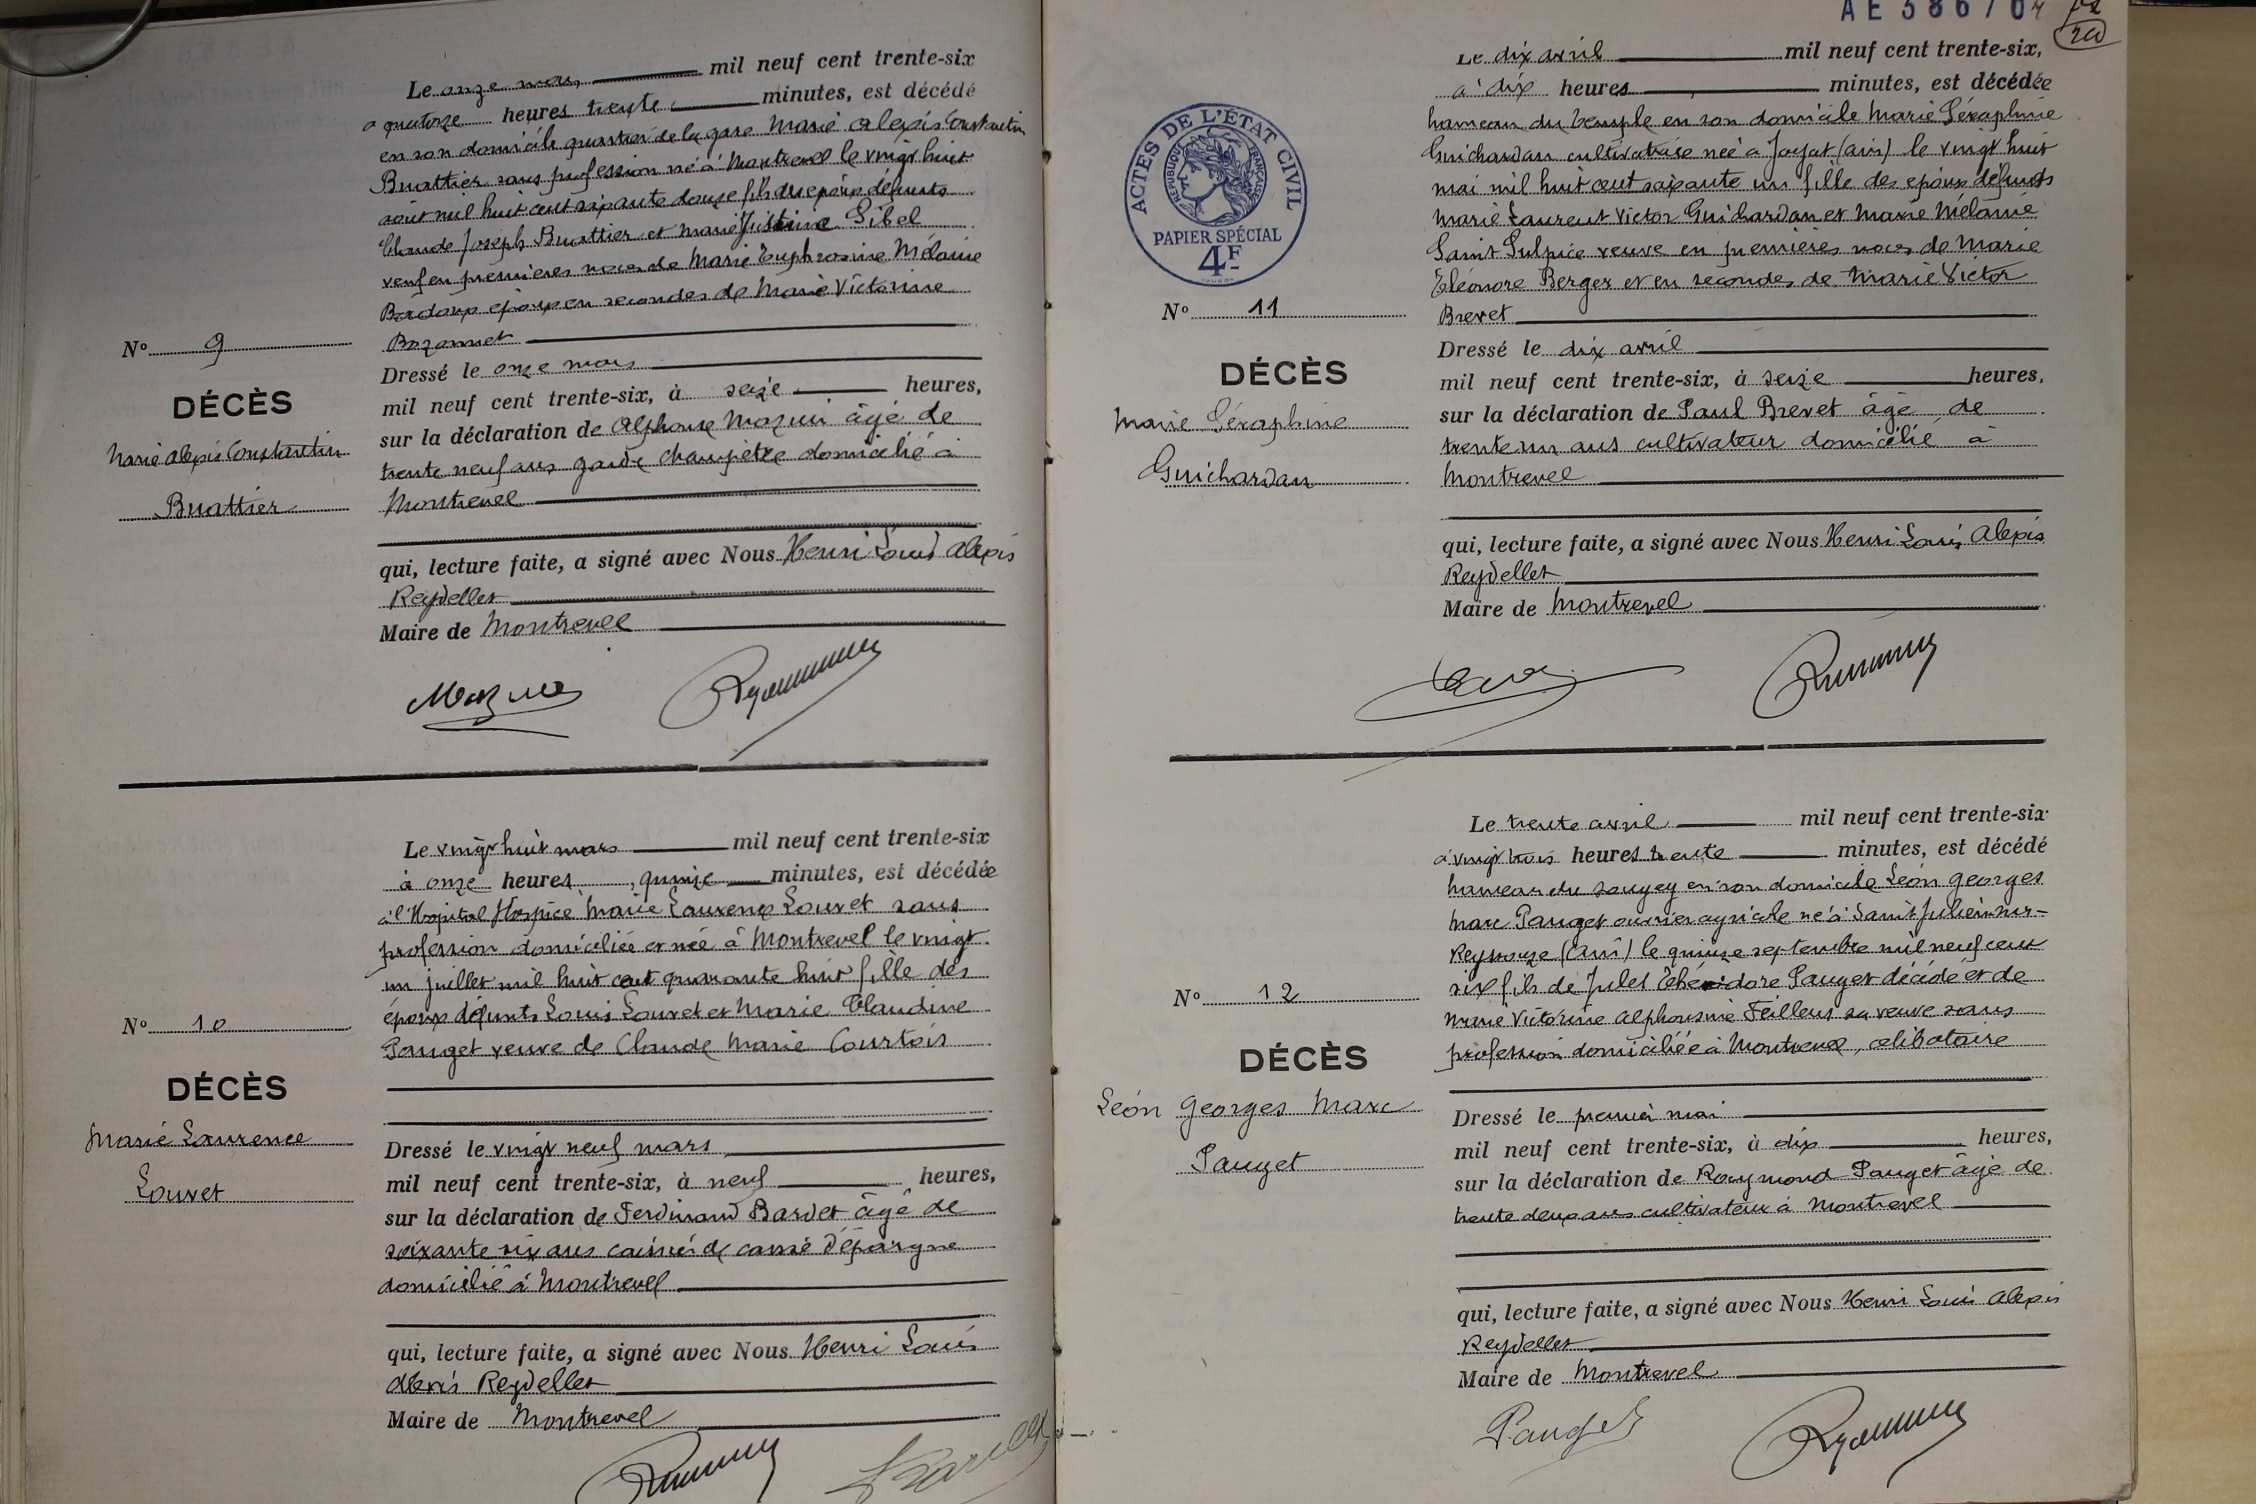 Le onze mars, mil neuf cent trente-six
a quatorze heures trente minutes, est décédé
en son domicile quartier de la gare Marie Alexis Constantin
Buattier sans profession né à Montrevel le vingt huit
août mil huit cent soixante douze fils des époux défunts
Claude Joseph Buattier et Marie Justine Sibel
veuf en premieres noces de Marie Euphrosine Mélanie
époux en secondes de Marie Victorine
Bozonnet
N° 9
DÉCÈS
Marie Alexis Constantin
Buattier
Dressé le onze mars
mil neuf cent trente-six, à seize heures,
sur la déclaration de Alphonse Mazuir âgé de
trente neuf ans garde champêtre domicilié à
Montrevel
qui, lecture faite, a signé avec Nous Henri Louis Alexis
Reydellet
Maire de Montrevel
Le vingt huit mars mil neuf cent trente-six
à onze heures, quinze minutes, est décédée
à l'Hopital Hospice Marie Laurence Louvet sans
profession domiciliée et née à Montrevel le vingt
un juillet mil huit cent quarante huit fille des
époux défunts Louis Louvet et Marie Claudine
Pauget veuve de Claude Marie Courtois
N° 10
DÉCÈS
Marie Laurence
Louvet
Dressé le vingt neuf mars
mil neuf cent trente-six, à neuf heures,
sur la déclaration de Ferdinand Bardet âgé de
soixante six ans caissier de caisse d'épargne
domicilié à Montrevel
qui, lecture faite, a signé avec Nous Henri Louis
Alexis Reydellet
Maire de Montrevel
AE 38670
ACTES DE L'ÉTAT CIVIL
RÉPUBLIQUE FRANÇAISE
PAPIER SPÉCIAL
4F
Le dix avril mil neuf cent trente-six,
à dix heures minutes, est décédée
hameau du Temple en son domicile Marie Séraphine
Guichardan cultivatrice née à Jayat (Ain) le vingt huit
mai mil huit cent soixante un fille des époux défunts
Marie Laurent Victor Guichardan et Marie Mélanie
Saint Sulpice veuve en premières noces de Marie
Eléonore Berger et en secondes de Marie Victor
Brevet
N° 11
DÉCÈS
Marie Séraphine
Guichardan
Dressé le dix avril
mil neuf cent trente-six, à seize heures,
sur la déclaration de Paul Brevet âgé de
trente un ans cultivateur domicilié à
Montrevel
qui, lecture faite, a signé avec Nous Henri Louis Alexis
Reydellet
Maire de Montrevel
Le trente avril mil neuf cent trente-six
à vingt trois heures trente minutes, est décédé
hameau du Sougey en son domicile Léon Georges
Marc Pauget ouvrier agricole né à Saint Julien sur-
Reyssouze (Ain) le quinze septembre mil neuf cent
six fils de Jules Théodore Pauget décédé et de
Marie Victorine Alphonsine Feillens sa veuve sans
profession domiciliée à Montrevel, célibataire
N° 12
DÉCÈS
Léon Georges Marc
Pauget
Dressé le premier mai
mil neuf cent trente-six, à dix heures,
sur la déclaration de Raymond Pauget âgé de
trente deux ans cultivateur à Montrevel
qui, lecture faite, a signé avec Nous Henri Louis Alexis
Reydellet
Maire de Montrevel
Pauget